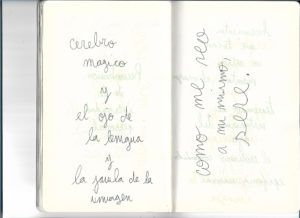 cerebro
magico
y
el ojo de
la lengua
y
la jaula de la
imagen
como me veo
a mi mismo,
seré.